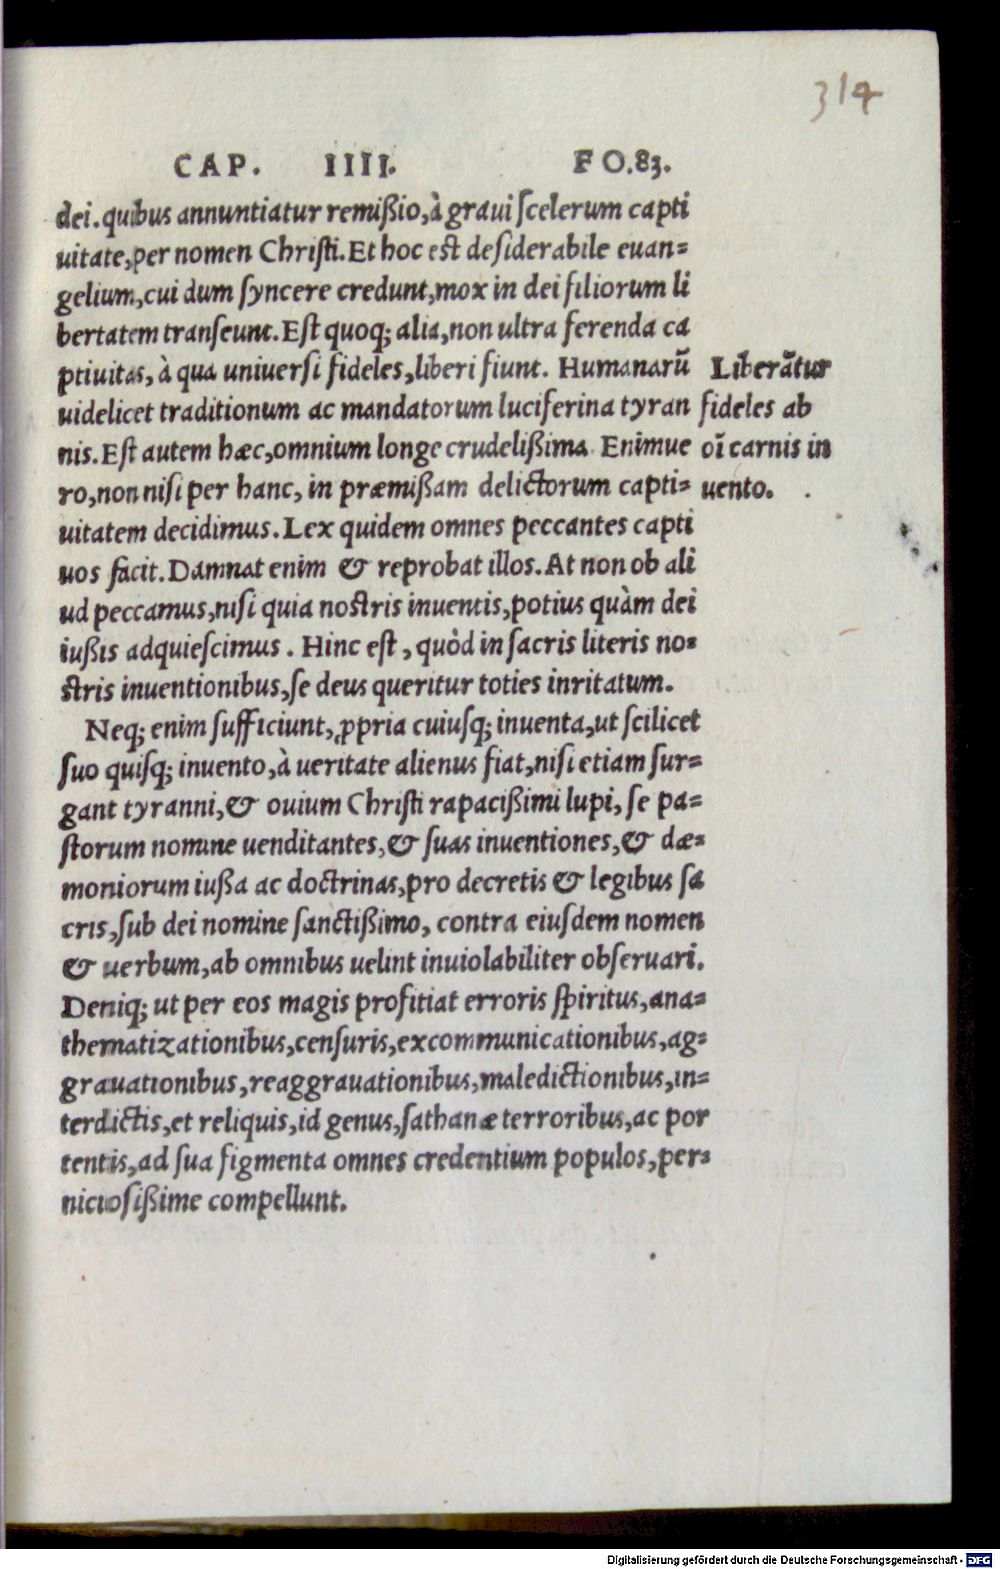 314
CAP. IIII. FO.83.
dei. quibus annuntiatur remißio, à graui scelerum capti
uitate, per nomen Christi. Et hoc est desiderabile euan=
gelium, cui dum syncere credunt, mox in dei filiorum li
bertatem transeunt. Est quoq; alia, non ultra ferenda ca
ptiuitas, à qua uniuersi fideles, liberi fiunt. Humanarū
uidelicet traditionum ac mandatorum luciferina tyran
nis. Est autem hæc, omnium longe crudelißima. Enimue
ro, non nisi per hanc, in præmißam delictorum capti=
uitatem decidimus. Lex quidem omnes peccantes capti
uos facit. Damnat enim & reprobat illos. At non ob ali
ud peccamus, nisi quia nostris inuentis, potius quàm dei
iußis adquiescimus. Hinc est, quòd in sacris literis no=
stris inuentionibus, se deus queritur toties inritatum.
Neq; enim sufficiunt, ꝓpria cuiusq; inuenta, ut scilicet
suo quisq; inuento, à ueritate alienus fiat, nisi etiam sur=
gant tyranni, & ouium Christi rapacißimi lupi, se pa=
storum nomine uenditantes, & suas inuentiones, & dæ=
moniorum iußa ac doctrinas, pro decretis & legibus sa
cris, sub dei nomine sanctißimo, contra eiusdem nomen
& uerbum, ab omnibus uelint inuiolabiliter obseruari.
Deniq; ut per eos magis profitiat erroris spiritus, ana=
thematizationibus, censuris, excommunicationibus, ag=
grauationibus, reaggrauationibus, maledictionibus, in=
terdictis, et reliquis, id genus, sathanæ terroribus, ac por
tentis, ad sua figmenta omnes credentium populos, per=
niciosißime compellunt.
Liberātur
fideles ab
oī carnis in
uento.
Digitalisierung gefördert durch die Deutsche Forschungsgemeinschaft - DFG